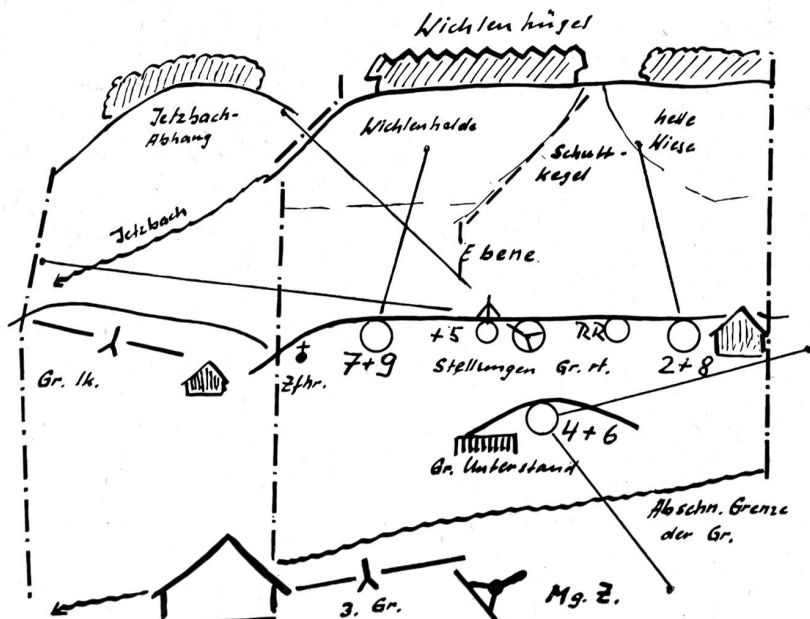 Wichlenhügel
Jetzbach-
Abhang
Wichlenhalde
helle
Wiese
Schutt-
kegel
Jetzbach
Ebene.
+5
RR
Gr. lk.
Zfhr.
7+9
Stellungen Gr. rt.
2+8
4+6
Gr. Unterstand
Abschn. Grenze
der Gr.
3. Gr.
Mg. Z.